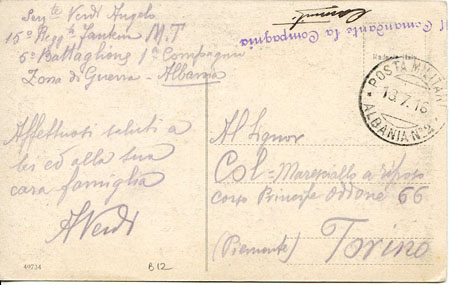 Serg.te Verdi Angelo
15° Regg.to Fanteria M.T
5° Battaglione 1a Compagnia
Zona di Guerra - Albania
Affettuosi saluti a
lei ed alla sua
cara famiglia
AVerdi
Il Comandante la Compagnia
POSTA MILITARE
13.7.16
ALBANIA N°2
Al Signor
Col = Maresciallo a riposo
corso Principe Oddone 66
(Piemonte) Torino
49734
B12